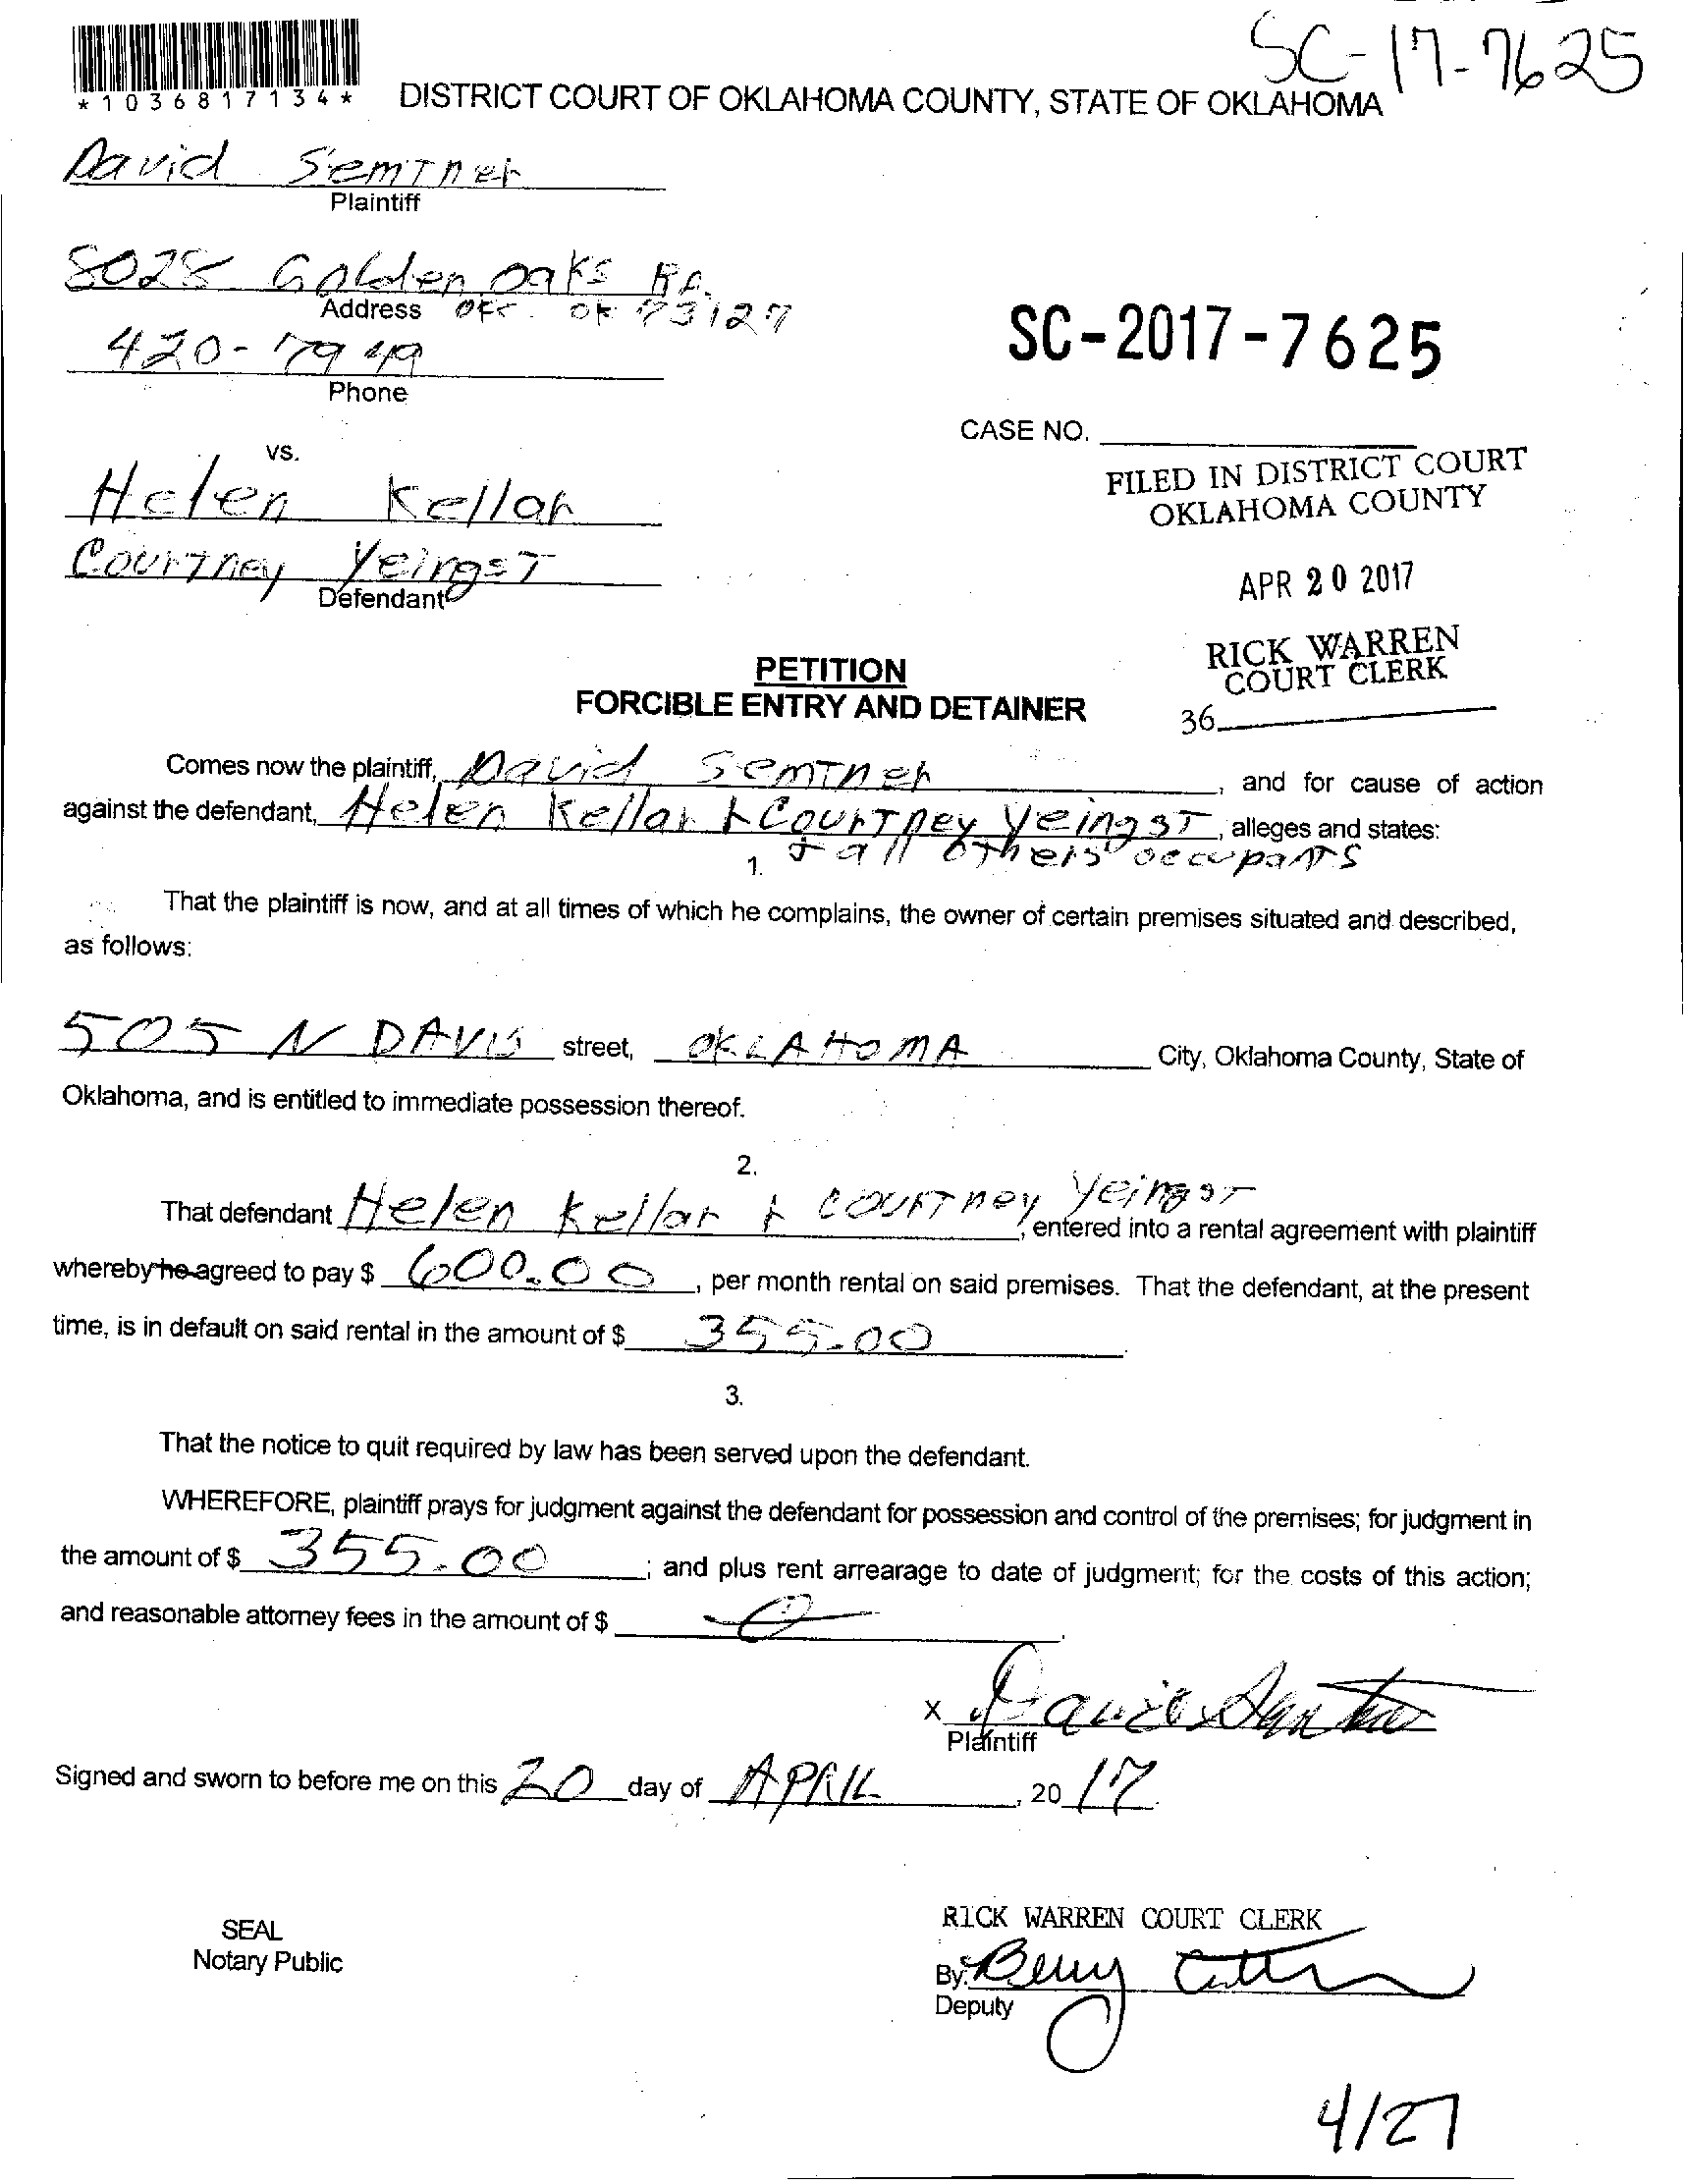 SC-17-7625
*1036817134*
DISTRICT COURT OF OKLAHOMA COUNTY, STATE OF OKLAHOMA
David Semtner
Plaintiff
8028 Golden Oaks Rd.
Address OKC. OK 73127
420-7949
Phone
SC-2017-7625
CASE NO.
vs.
Helen Kellar
Courtney Yeingst
Defendant
FILED IN DISTRICT COURT
OKLAHOMA COUNTY
APR 20 2017
RICK WARREN
COURT CLERK
36
PETITION
FORCIBLE ENTRY AND DETAINER
Comes now the plaintiff, David Semtner, and for cause of action
against the defendant, Helen Kellar & Courtney Yeingst, alleges and states:
& all others occupants
1.
That the plaintiff is now, and at all times of which he complains, the owner of certain premises situated and described,
as follows:
505 N DAVIS street, OKLAHOMA City, Oklahoma County, State of
Oklahoma, and is entitled to immediate possession thereof.
2.
That defendant Helen Kellar & Courtney Yeingst, entered into a rental agreement with plaintiff
whereby he agreed to pay $ 600.00, per month rental on said premises. That the defendant, at the present
time, is in default on said rental in the amount of $ 355.00.
3.
That the notice to quit required by law has been served upon the defendant.
WHEREFORE, plaintiff prays for judgment against the defendant for possession and control of the premises; for judgment in
the amount of $ 355.00; and plus rent arrearage to date of judgment; for the costs of this action;
and reasonable attorney fees in the amount of $ 0.
x David Semtner
Plaintiff
Signed and sworn to before me on this 20 day of APRIL, 20 17.
SEAL
Notary Public
RICK WARREN COURT CLERK
By:
Deputy
4/27